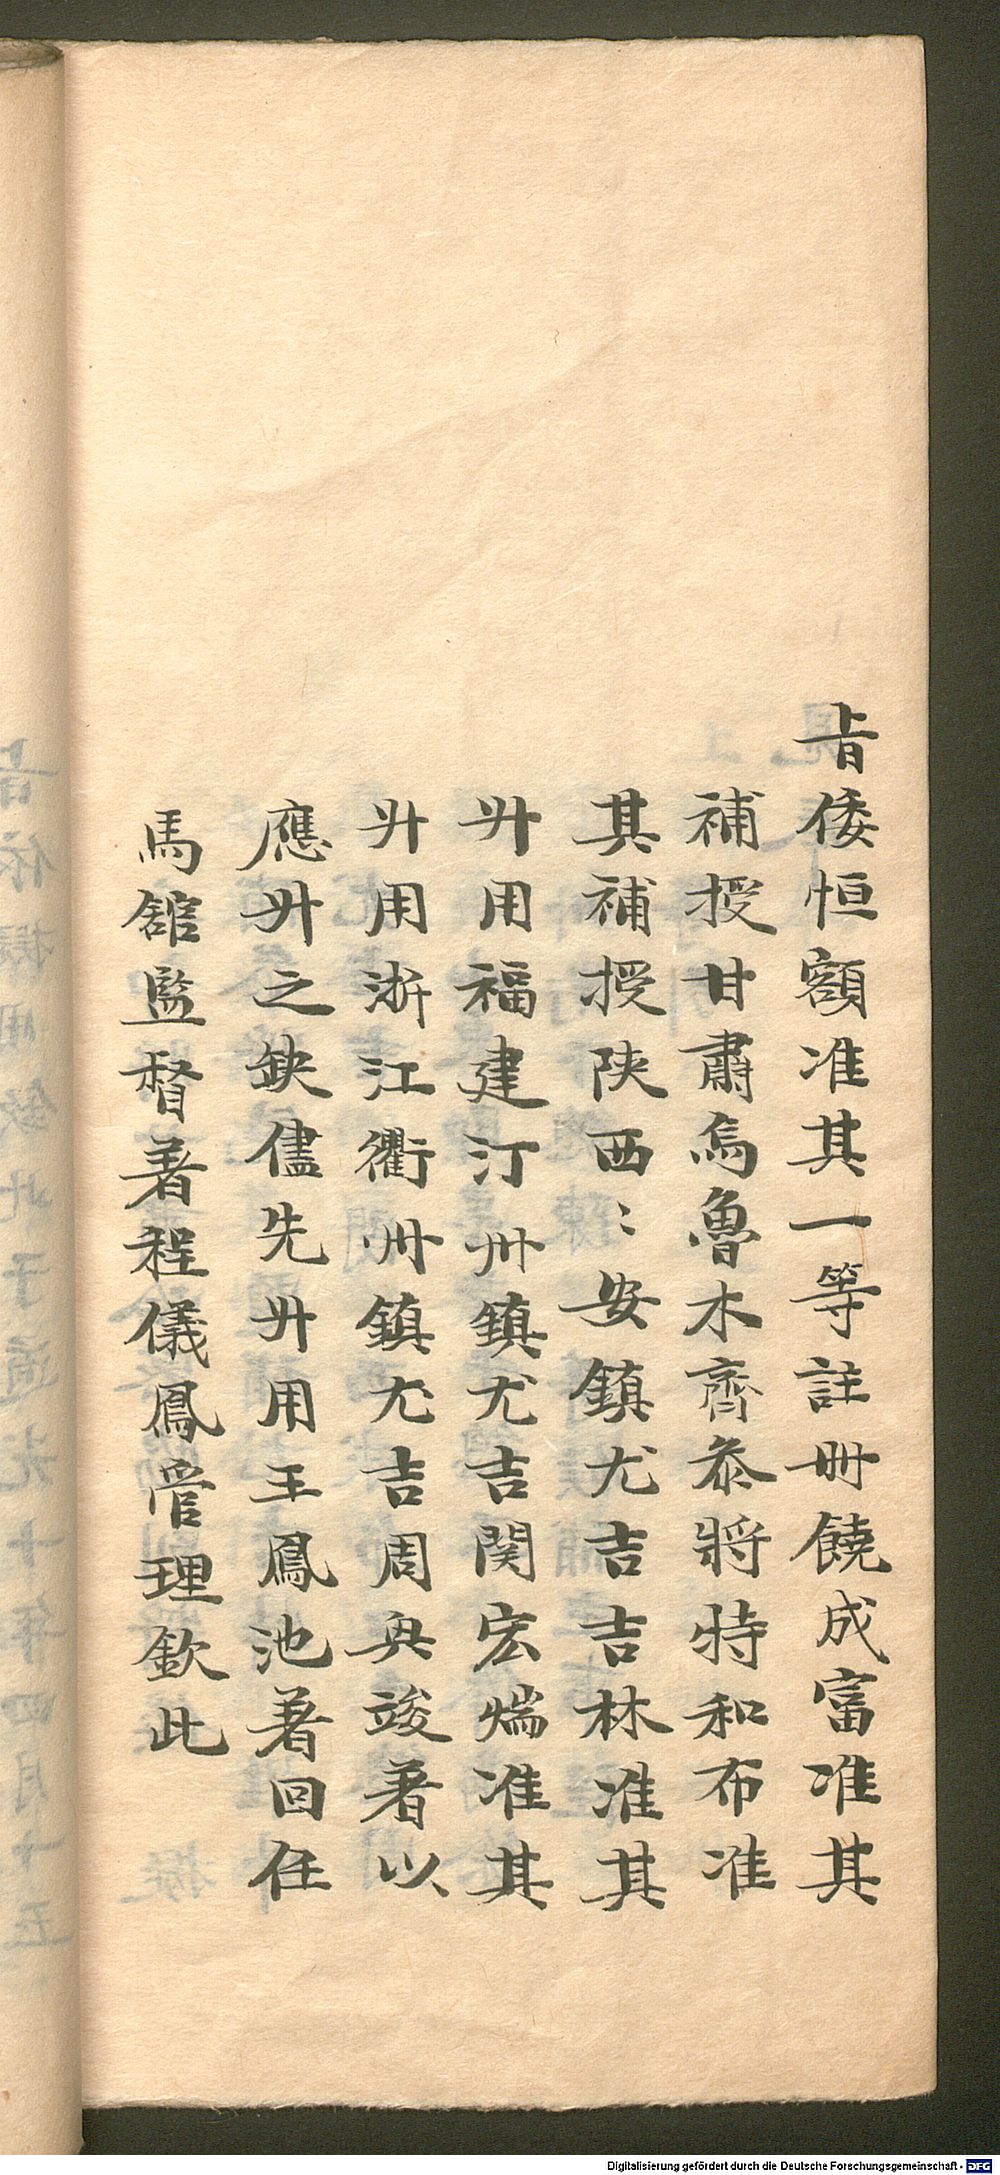 旨倭恒額准其一等註册饒成富准其
補授甘肅烏魯木齊叅將特和布准
其補授陕西⺀安鎮尤吉吉林准其
升用福建汀州鎮尤吉関宏煓准其
升用浙江衢州鎮尤吉周兴竣着以
應升之缺儘先升用王鳳池着回任
馬舘監督著程儀鳳管理欽此
Digitalisierung gefördert durch die Deutsche Forschungsgemeinschaft - DFG